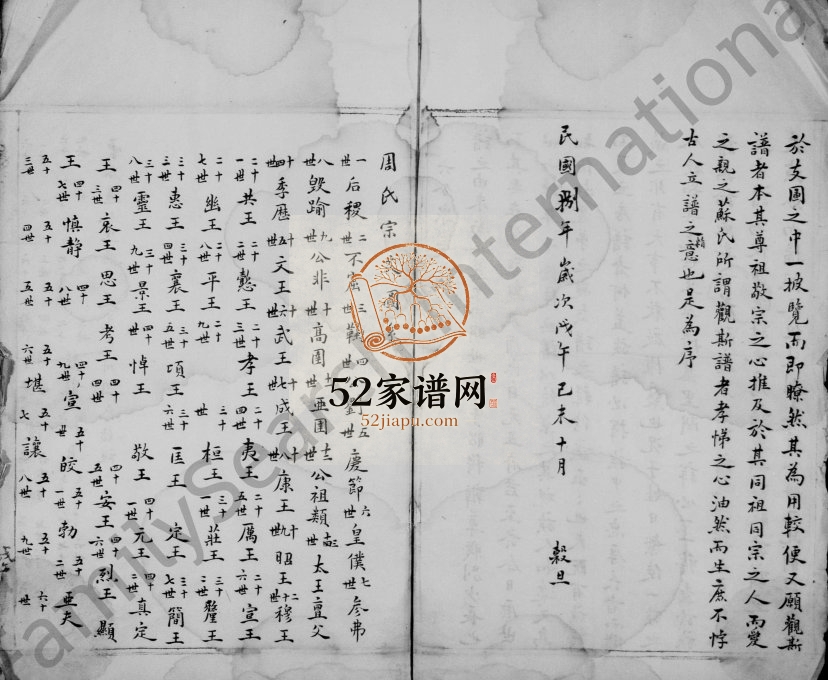 於支圖之中一披覽而即瞭然其為用較便又願觀斯
譜者本其尊祖敬宗之心推及於其同祖同宗之人而愛
之親之蘇氏所謂觀斯譜者孝悌之心油然而生庶不悖
古人立譜之意也是為序
民國捌年歲次戊午己未十月 穀旦
周氏宗
一世后稷二世不窋三世鞠四世 五世慶節六世皇僕七世参弗
八世毀踰九世公非十世高圉十一世亞圉十二世公祖類十三世太王亶父
十四世季歷十五世文王十六世武王十七世成王十八世康王十九世昭王二十世穆王
二十一世共王二十二世懿王二十三世孝王二十四世夷王二十五世厲王二十六世宣王
二十七世幽王二十八世平王二十九世 三十世桓王三十一世莊王三十二世釐王
三十三世惠王三十四世襄王三十五世頃王三十六世匡王 定王三十七世簡王
三十八世靈王三十九世景王四十世悼王 敬王四十一世元王四十二世真定
王四十三世哀王 思王 考王四十四世 四十五世安王四十六世烈王 顯
王四十七世慎静四十八世 四十九世宣五十世皎五十一世勃五十二世亞夫
五十三世 五十四世 五十五世 五十六世堪五十七 讓五十八世 五十九世 六十世
52家谱网
52jiapu.com
FamilySearch International